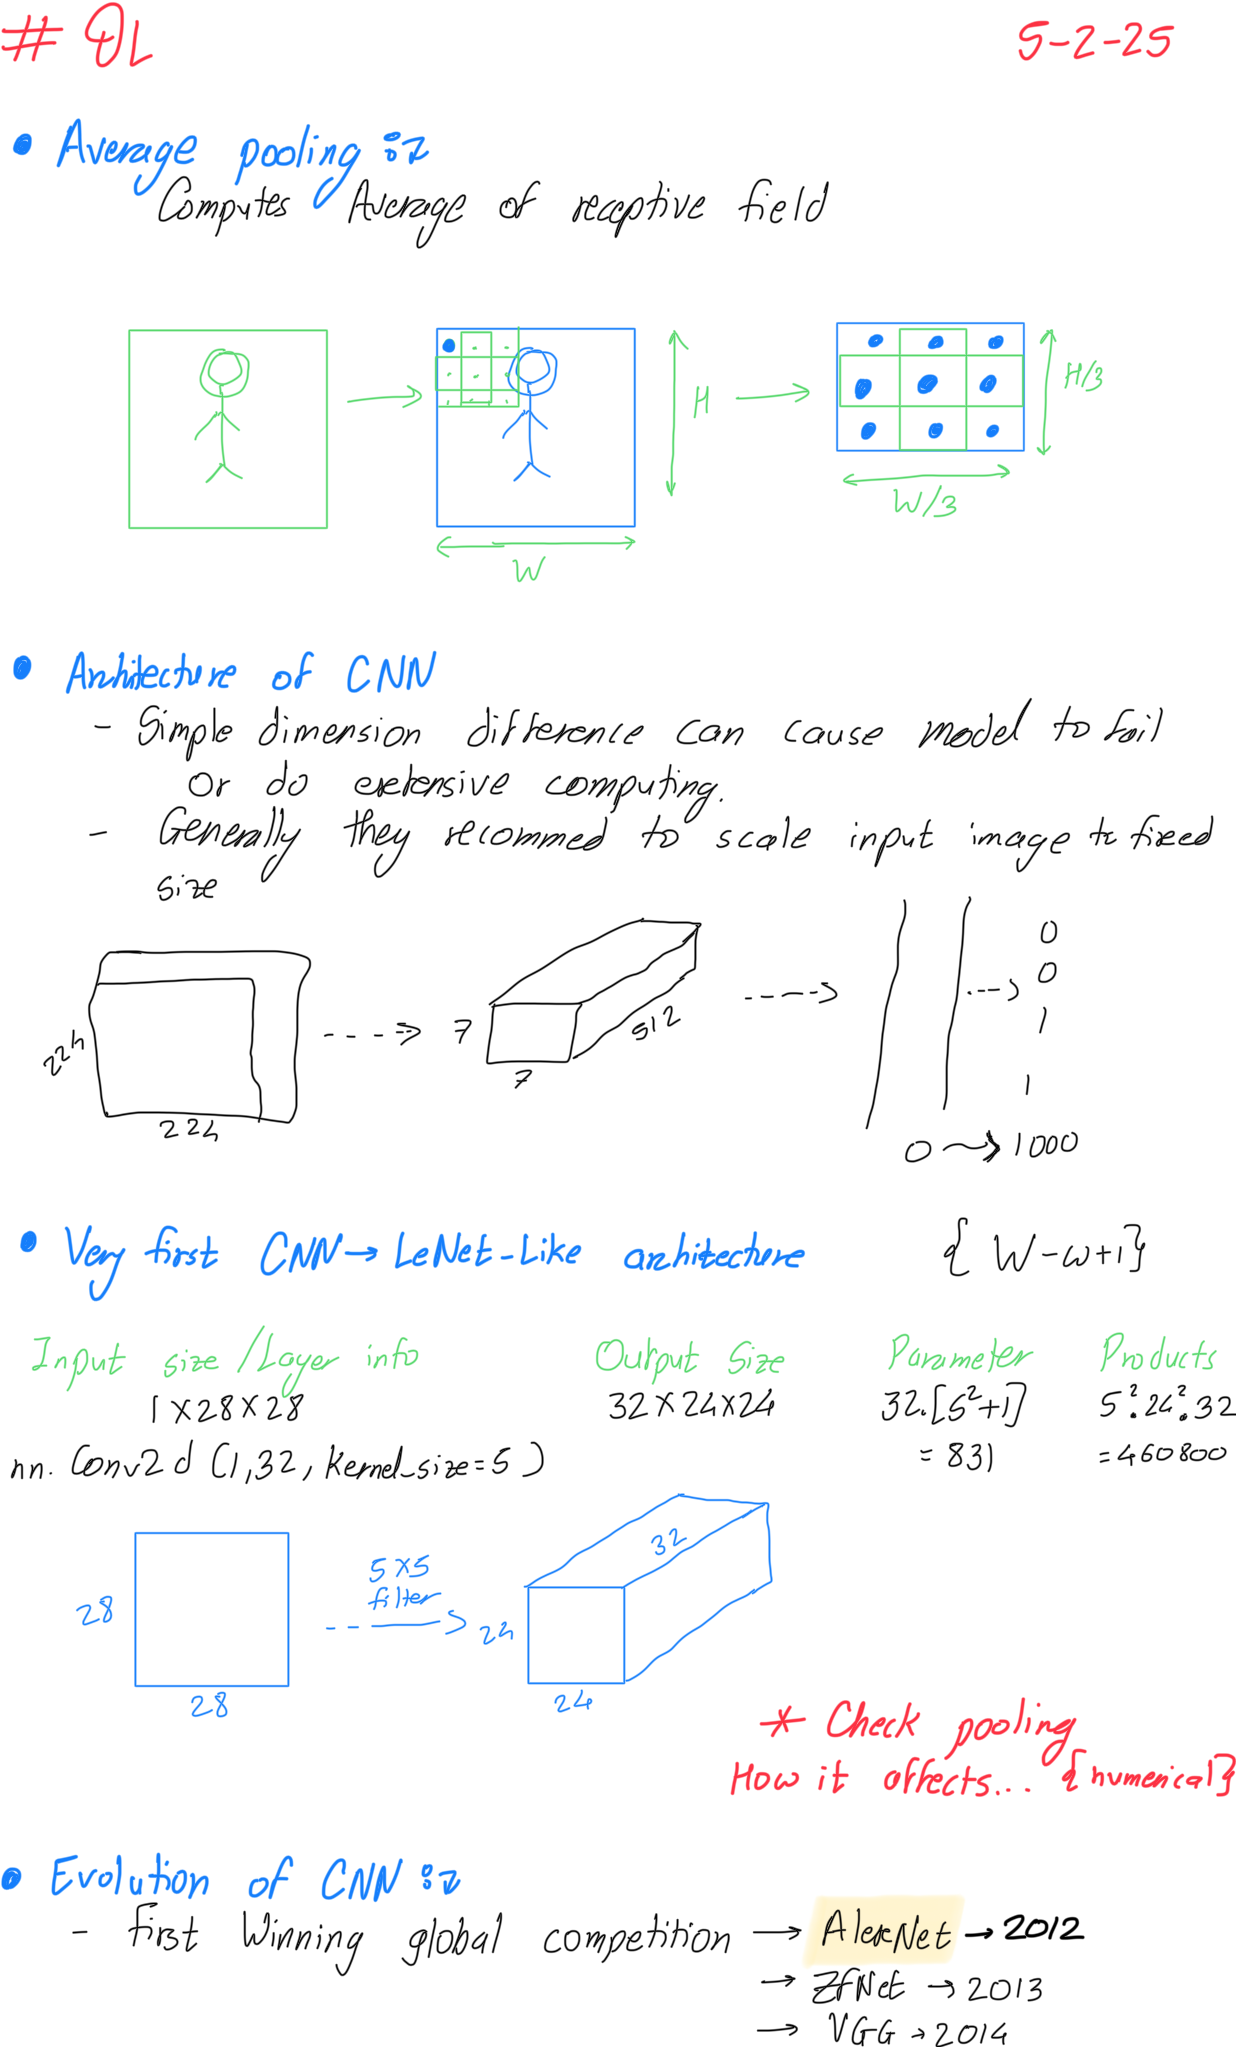 # DL 5-2-25
• Average pooling :-
Computes Average of receptive field
H
H/3
W/3
W
• Architecture of CNN
- Simple dimension difference can cause model to fail
or do extensive computing.
- Generally they recommed to scale input image to fixed
size
0
0
224 7 512 1
7 1
224
0 → 1000
• Very first CNN → LeNet-Like architecture { W-w+1}
Input size /Layer info Output Size Parameter Products
1 X 28 X 28 32 X 24 X 24 32.[5²+1] 5².24².32
nn. Conv2d (1,32, kernel_size=5 ) = 831 = 460800
32
5 X 5
filter
28 24
28 24
* Check pooling
How it affects... {numerical}
• Evolution of CNN :-
- first Winning global competition → AlexNet → 2012
→ ZfNet → 2013
→ VGG → 2014